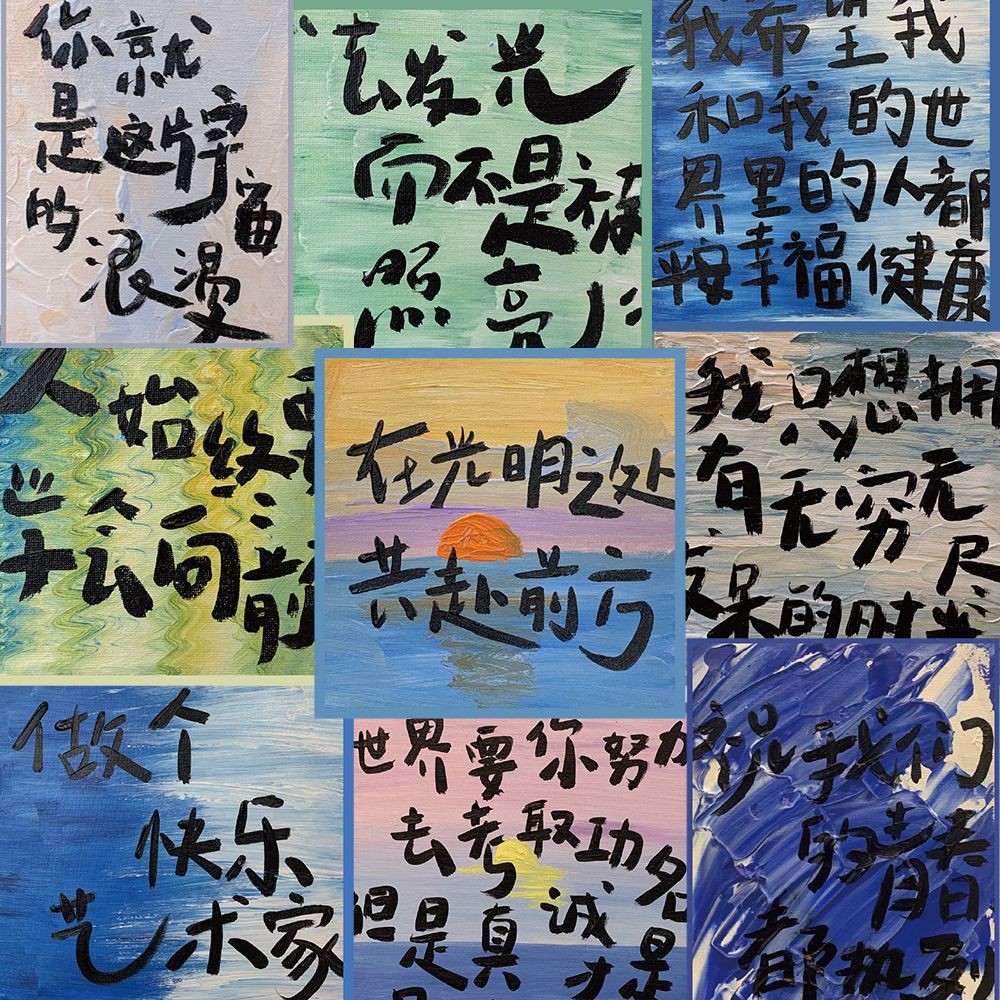 你就
是这片宇宙
的浪漫
去发光
而不是被
照亮
我希望我
和我的世
界里的人都
平安幸福健康
人始终要
学会向前
在光明之处
共赴前方
我只想拥
有无穷无尽
发呆的时光
做个
快乐
艺术家
世界要你努力
去考取功名
但是真诚才是
祝我们
的青春
都热烈